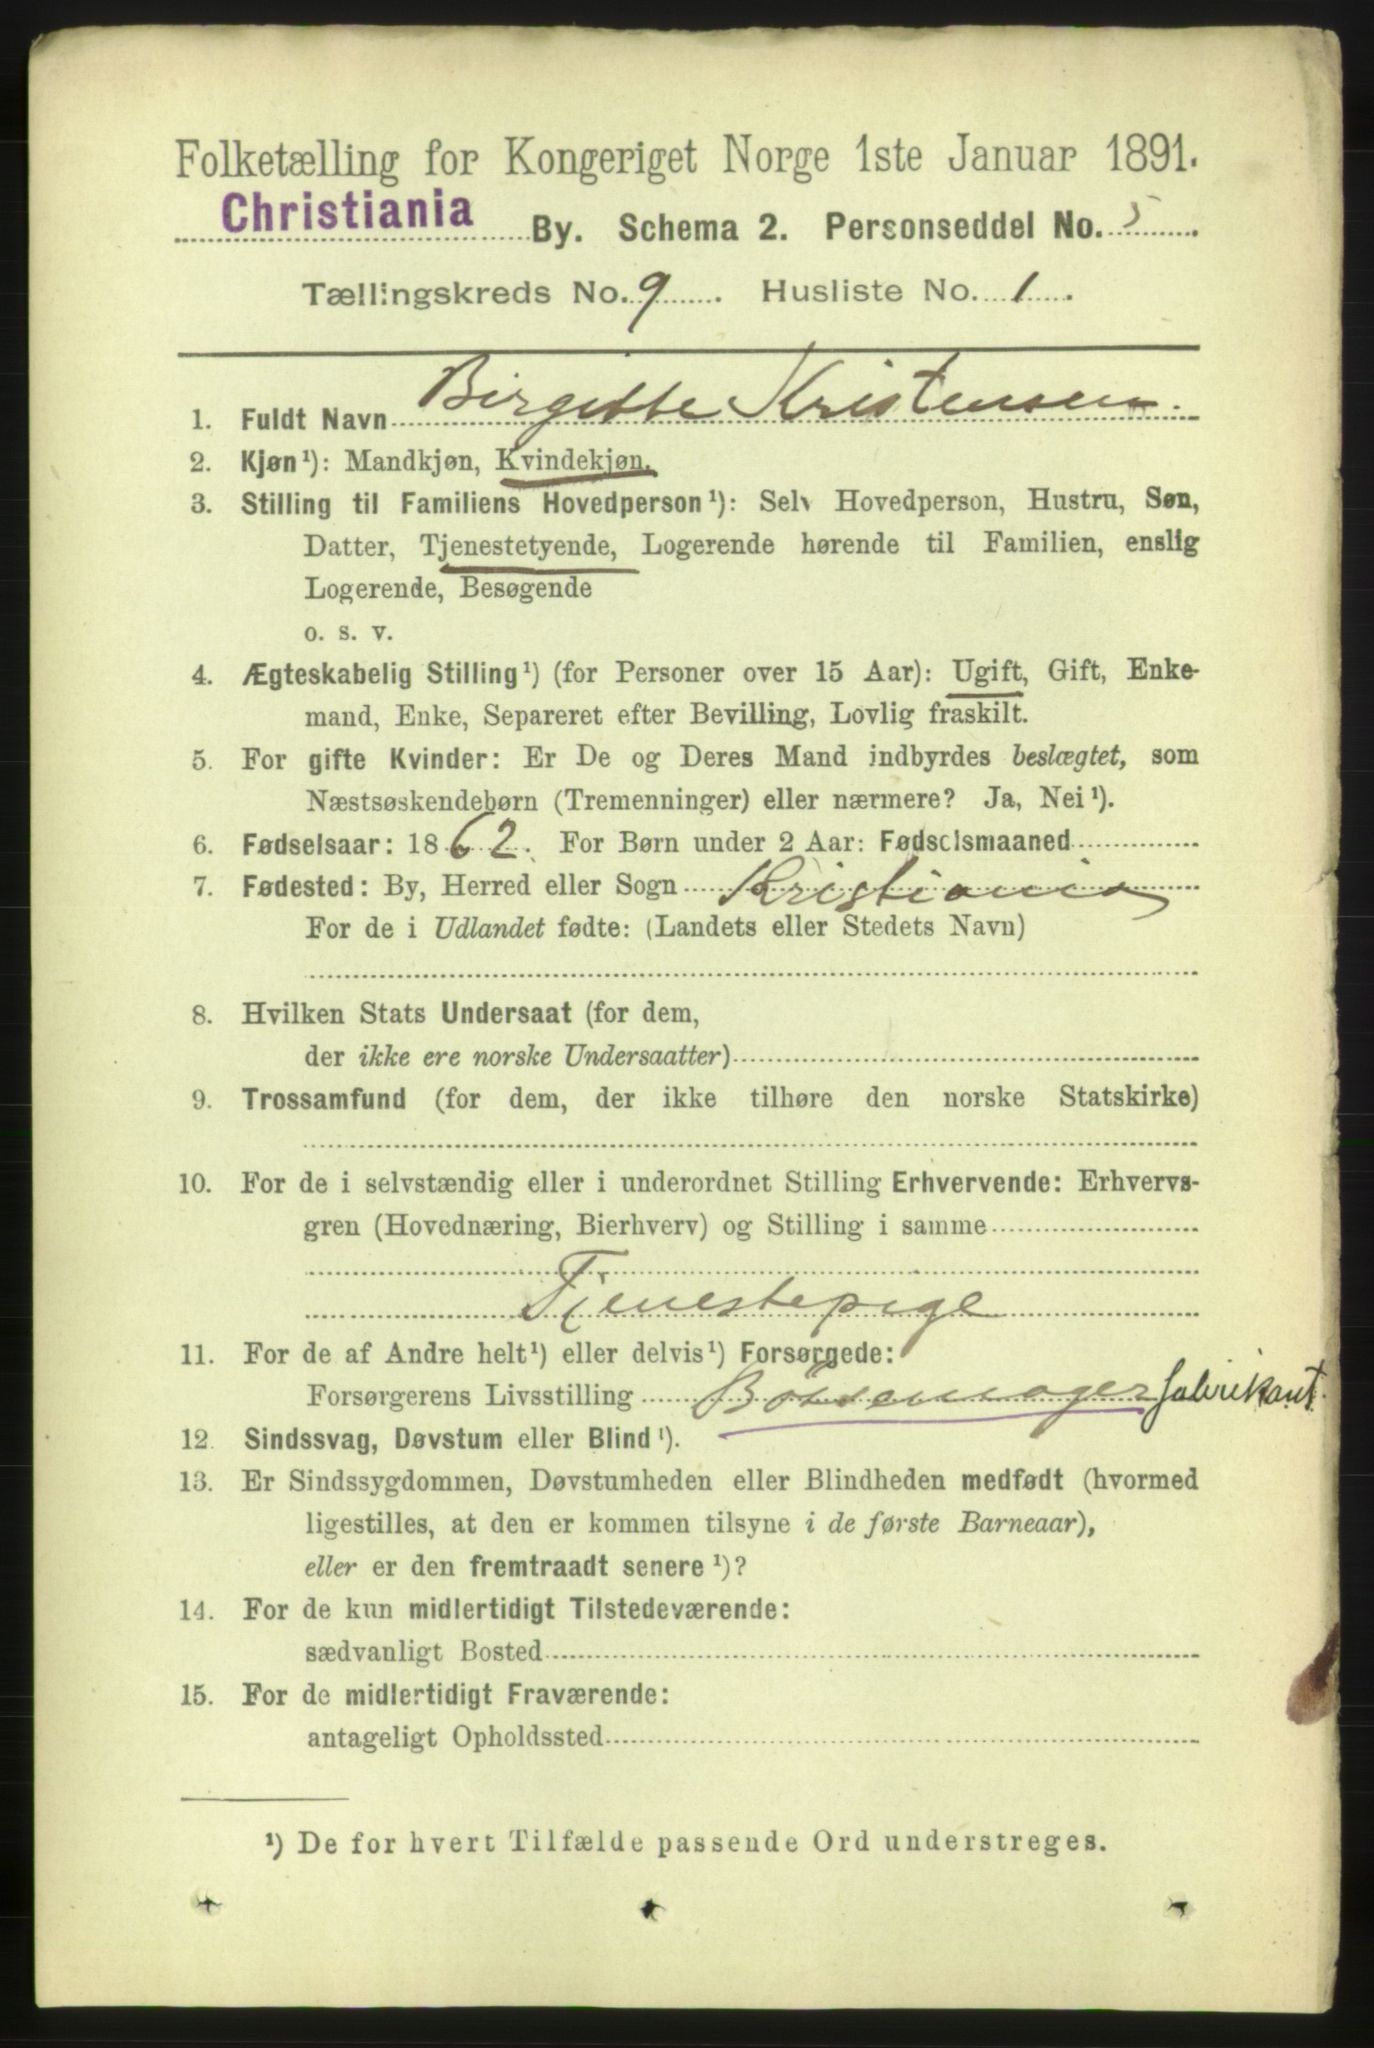 Folketælling for Kongeriget Norge 1ste Januar 1891.
Christiania By. Schema 2. Personseddel No. 5
Tællingskreds No. 9. Husliste No. 1.
1. Fuldt Navn Birgitte Kristensen.
2. Kjøn¹): Mandkjøn, Kvindekjøn.
3. Stilling til Familiens Hovedperson¹): Selv Hovedperson, Hustru, Søn,
Datter, Tjenestetyende, Logerende hørende til Familien, enslig
Logerende, Besøgende
o. s. v.
4. Ægteskabelig Stilling¹) (for Personer over 15 Aar): Ugift, Gift, Enke-
mand, Enke, Separeret efter Bevilling, Lovlig fraskilt.
5. For gifte Kvinder: Er De og Deres Mand indbyrdes beslægtet, som
Næstsøskendebørn (Tremenninger) eller nærmere? Ja, Nei¹).
6. Fødselsaar: 1862. For Børn under 2 Aar: Fødselsmaaned
7. Fødested: By, Herred eller Sogn Kristiania
For de i Udlandet fødte: (Landets eller Stedets Navn)
8. Hvilken Stats Undersaat (for dem,
der ikke ere norske Undersaatter)
9. Trossamfund (for dem, der ikke tilhøre den norske Statskirke)
10. For de i selvstændig eller i underordnet Stilling Erhvervende: Erhvervs-
gren (Hovednæring, Bierhverv) og Stilling i samme
Tjenestepige
11. For de af Andre helt¹) eller delvis¹) Forsørgede:
Forsørgerens Livsstilling fabrikant.
12. Sindssvag, Døvstum eller Blind¹).
13. Er Sindssygdommen, Døvstumheden eller Blindheden medfødt (hvormed
ligestilles, at den er kommen tilsyne i de første Barneaar),
eller er den fremtraadt senere¹)?
14. For de kun midlertidigt Tilstedeværende:
sædvanligt Bosted
15. For de midlertidigt Fraværende:
antageligt Opholdssted
¹) De for hvert Tilfælde passende Ord understreges.